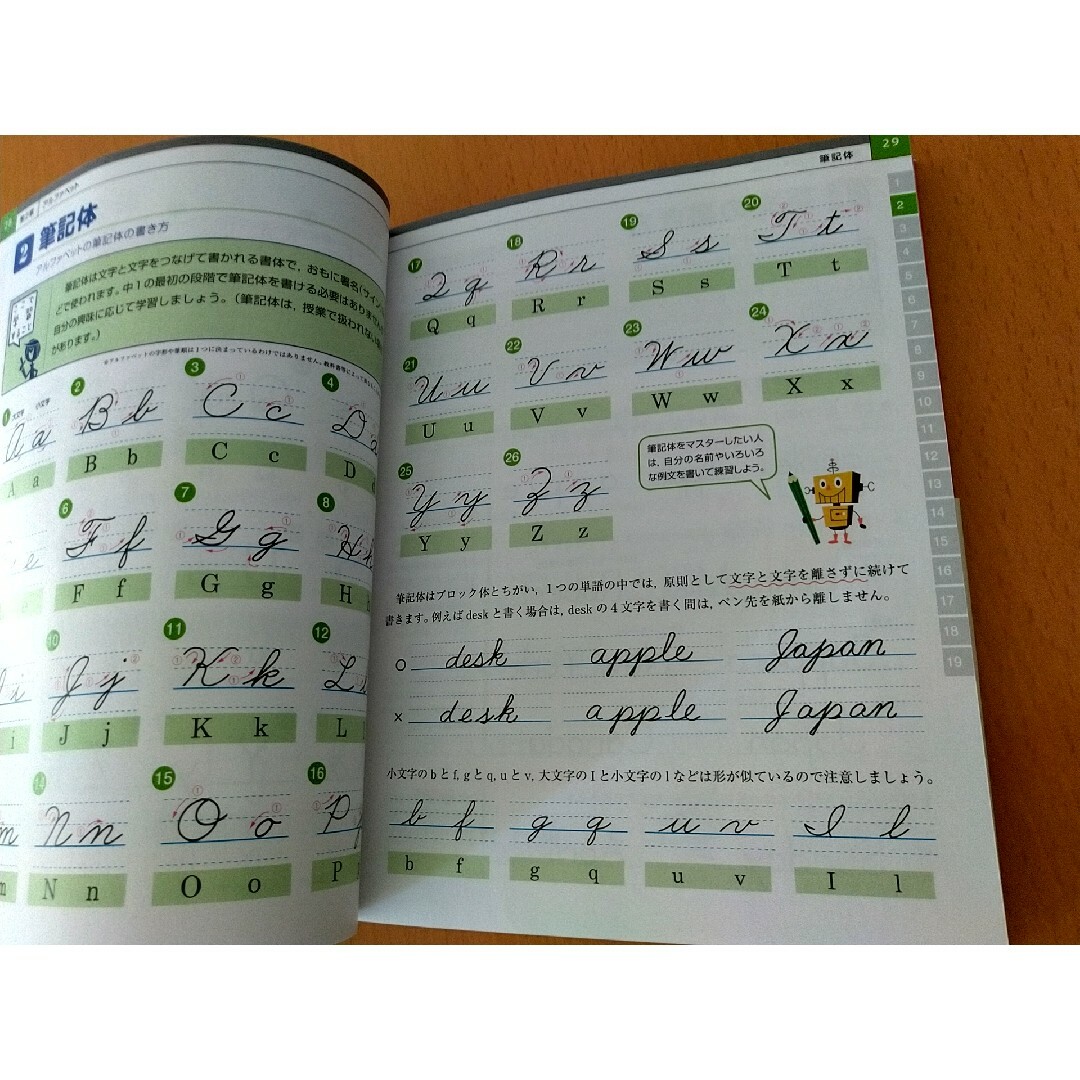 アルファベット
2 筆記体
アルファベットの筆記体の書き方
筆記体は文字と文字をつなげて書かれる書体で,おもに署名(サイン)
どで使われます。中1の最初の段階で筆記体を書ける必要はありません
自分の興味に応じて学習しましょう。(筆記体は,授業で扱われない
があります。)
1 2 3 4
大文字 小文字
A a B b C c D
A a B b C c D
6 7 8
e F f G g H h
F f G g H
10 11 12
i J j K k L
i J j K k L
14 15 16
m N n O o P p
m N n O o P
筆記体 29
17 18 19 20
Q q R r S s T t
Q q R r S s T t
21 22 23 24
U u V v W w X x
U u V v W w X x
25 26
Y y Z z
Y y Z z
筆記体をマスターしたい人
は,自分の名前やいろいろ
な例文を書いて練習しよう。
筆記体はブロック体とちがい,1つの単語の中では,原則として文字と文字を離さずに続けて
書きます。例えばdeskと書く場合は,deskの4文字を書く間は,ペン先を紙から離しません。
○ desk apple Japan
× desk apple Japan
小文字のbとf,gとq,uとv,大文字のIと小文字のlなどは形が似ているので注意しましょう。
b f g q u v I l
b f g q u v I l
1
2
3
4
5
6
7
8
9
10
11
12
13
14
15
16
17
18
19